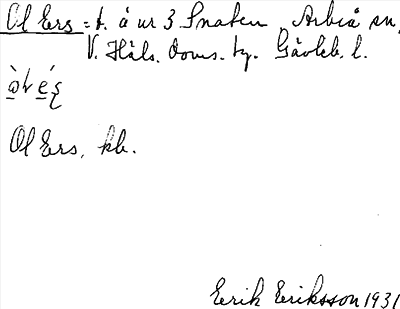 Ol Ers = t. å nr 3 Snaten, Arbrå sn,
V. Häls. doms. tg. Gävleb. l.
Ol Ers, kb.
Erik Eriksson 1931